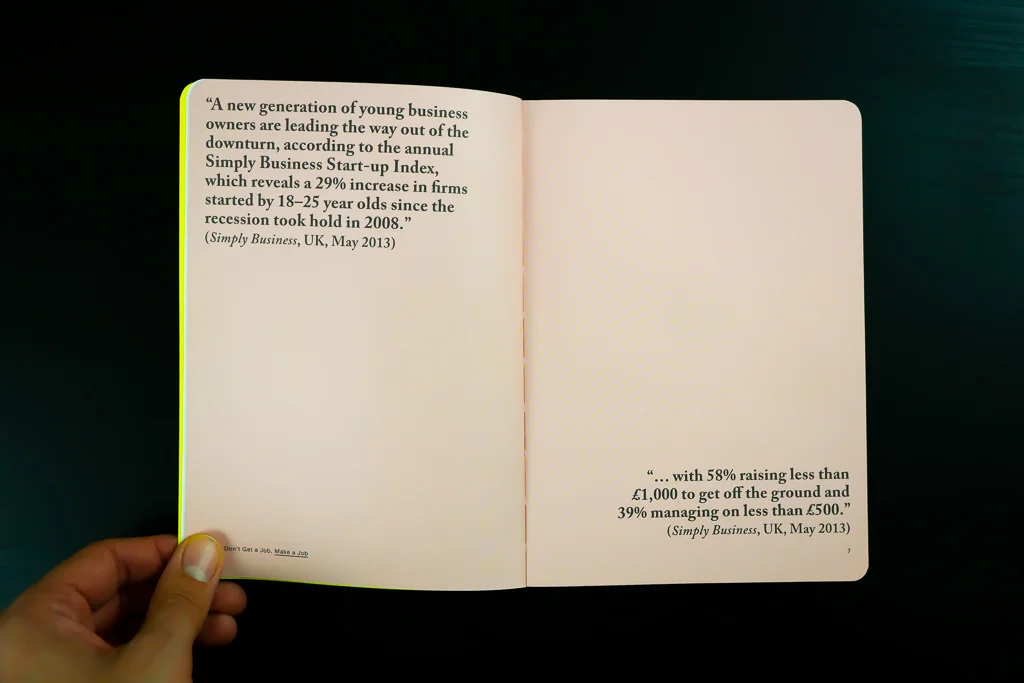 “A new generation of young business
owners are leading the way out of the
downturn, according to the annual
Simply Business Start-up Index,
which reveals a 29% increase in firms
started by 18–25 year olds since the
recession took hold in 2008.”
(Simply Business, UK, May 2013)
Don't Get a Job, Make a Job
“… with 58% raising less than
£1,000 to get off the ground and
39% managing on less than £500.”
(Simply Business, UK, May 2013)
7